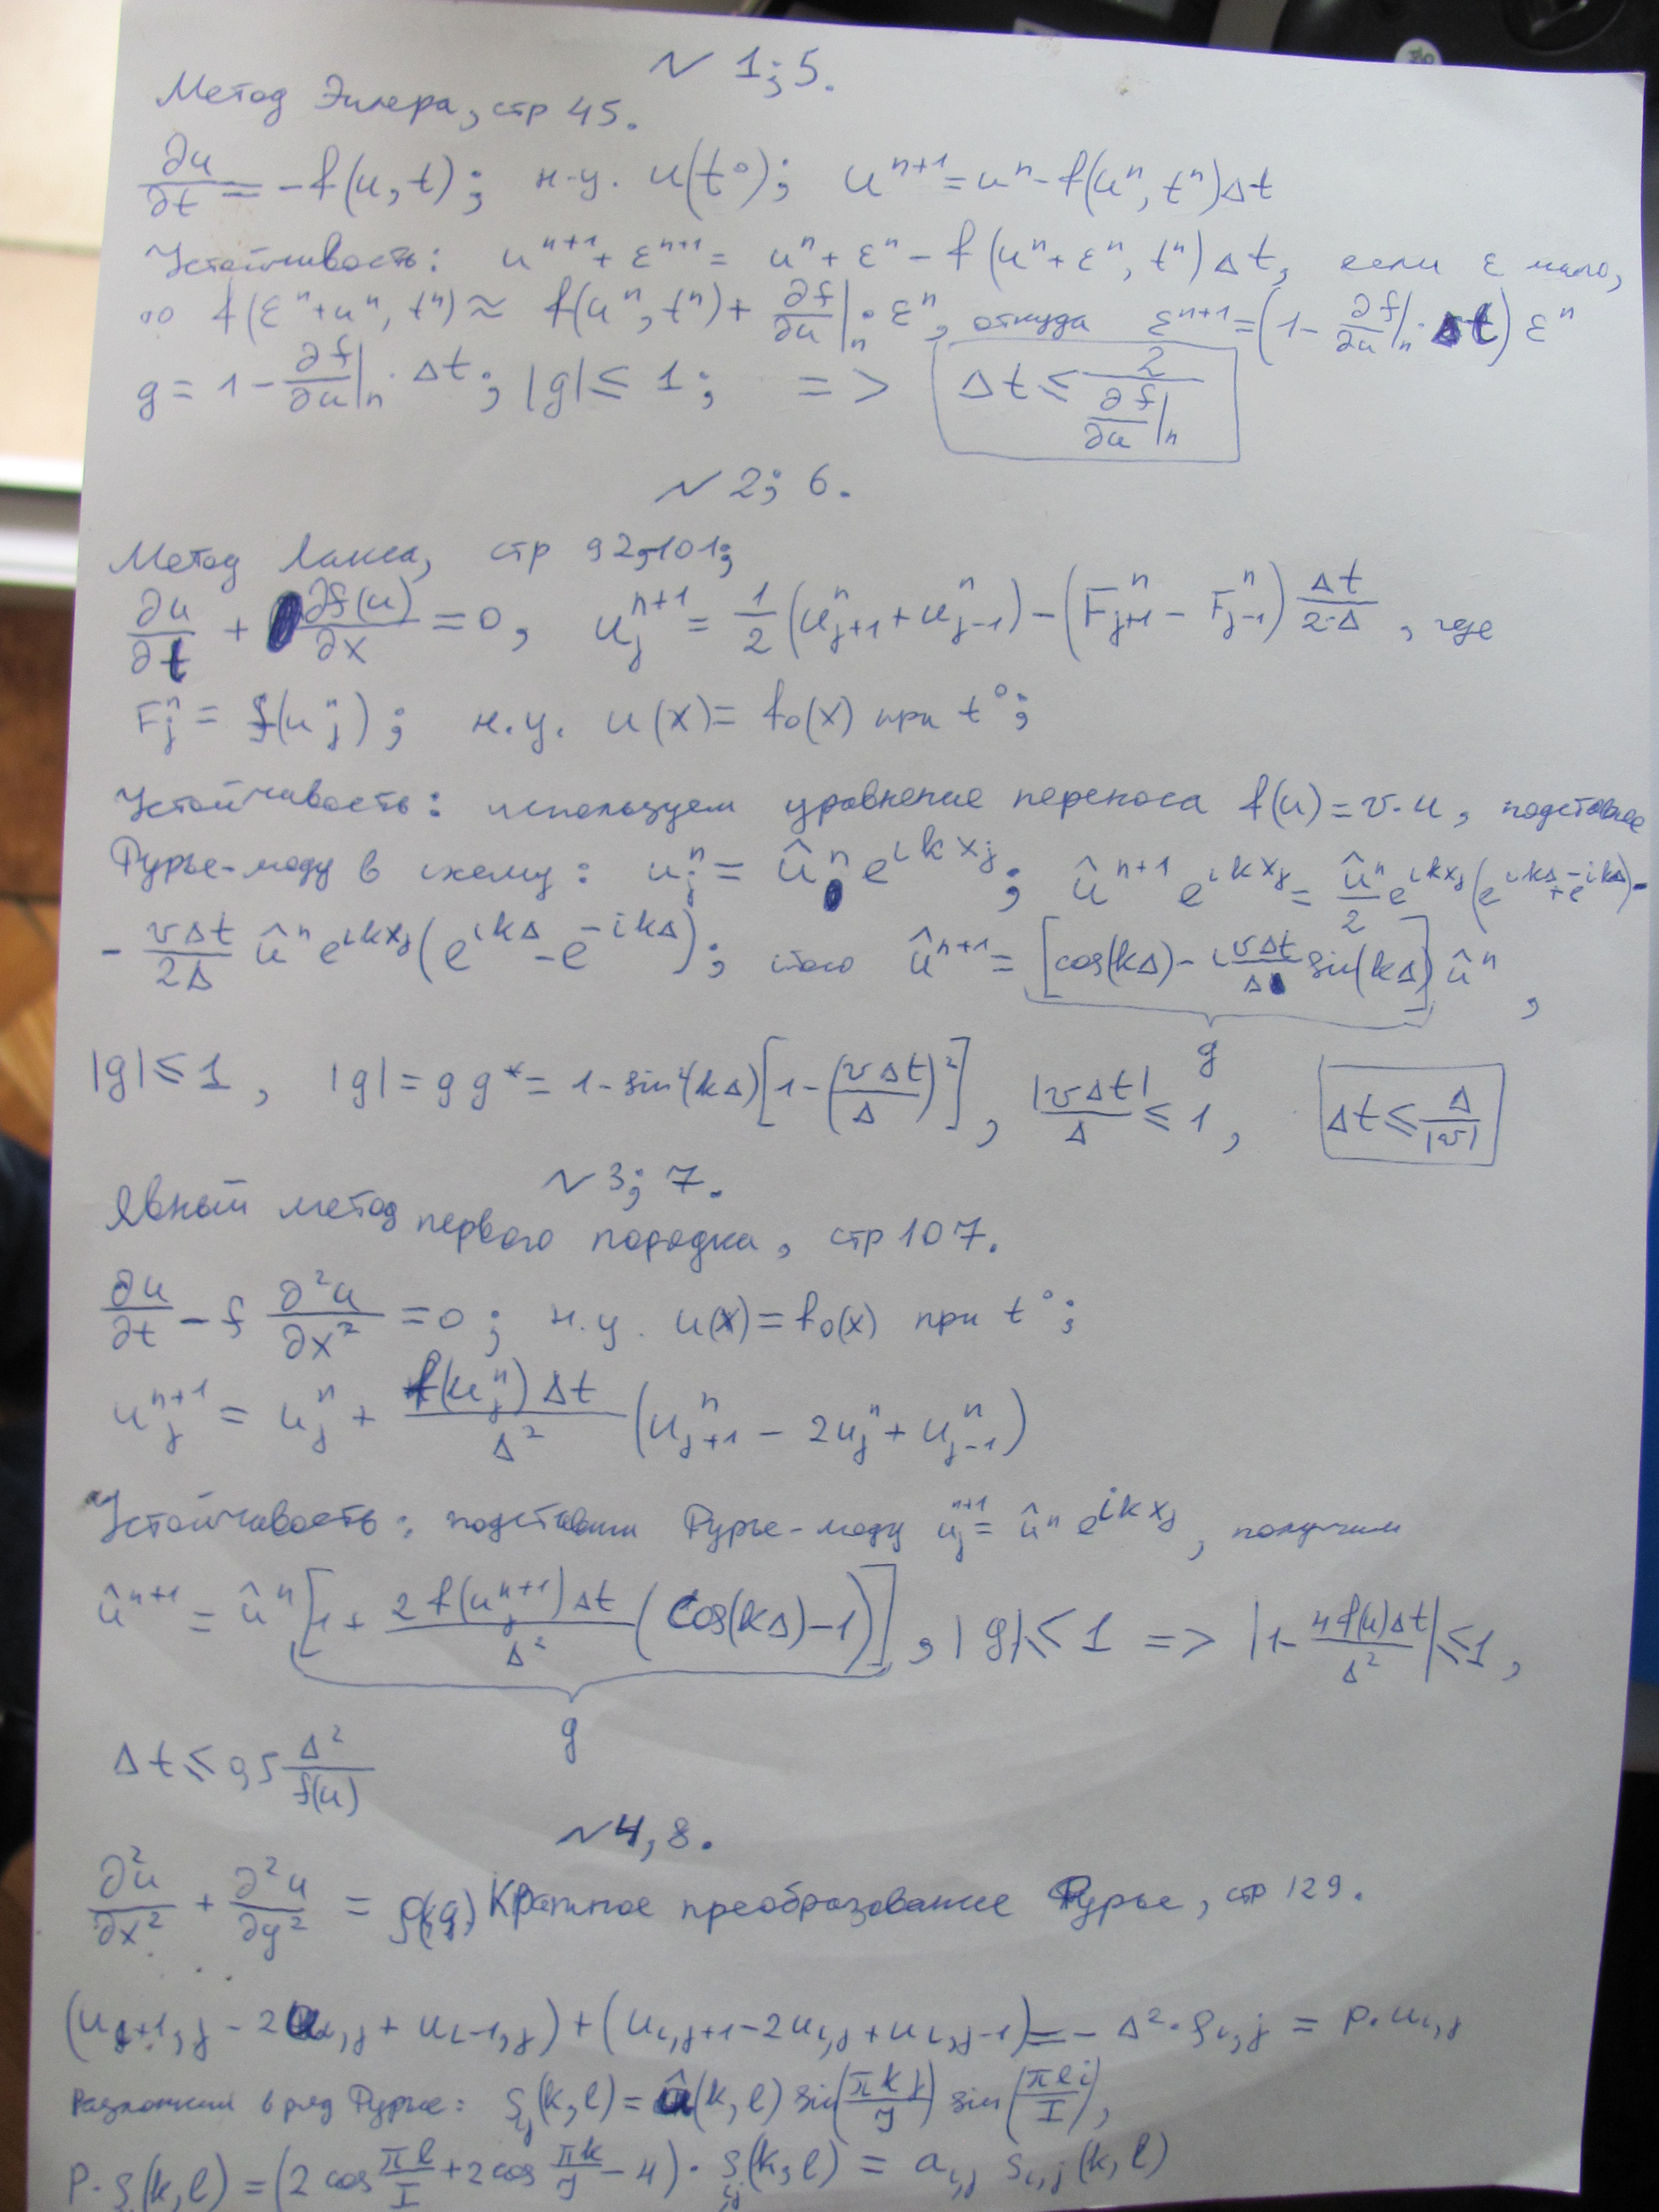 N 1; 5.
Метод Эйлера, стр 45.
∂u/∂t = -f(u, t); н.у. u(t⁰); uⁿ⁺¹ = uⁿ - f(uⁿ, tⁿ)Δt
Устойчивость: uⁿ⁺¹ + εⁿ⁺¹ = uⁿ + εⁿ - f(uⁿ + εⁿ, tⁿ)Δt, если ε мало,
то f(εⁿ + uⁿ, tⁿ) ≈ f(uⁿ, tⁿ) + ∂f/∂u|ₙ · εⁿ, откуда εⁿ⁺¹ = (1 - ∂f/∂u|ₙ · Δt) εⁿ
g = 1 - ∂f/∂u|ₙ · Δt; |g| ≤ 1; => Δt ≤ 2/(∂f/∂u|ₙ)
N 2; 6.
Метод Лакса, стр 92,101;
∂u/∂t + ∂f(u)/∂x = 0, u_j^{n+1} = 1/2 (u_{j+1}^n + u_{j-1}^n) - (F_{j+1}^n - F_{j-1}^n) Δt/(2·Δ), где
F_j^n = f(u_j^n); н.у. u(x) = f₀(x) при t⁰;
Устойчивость: используем уравнение переноса f(u) = v·u, подставляем
Фурье-моду в схему: u_j^n = û^n e^{ikx_j}; û^{n+1} e^{ikx_j} = û^n/2 e^{ikx_j}(e^{ikΔ} + e^{-ikΔ}) -
- vΔt/2Δ û^n e^{ikx_j}(e^{ikΔ} - e^{-ikΔ}); итого û^{n+1} = [cos(kΔ) - i vΔt/Δ sin(kΔ)] û^n,
g
|g| ≤ 1, |g| = g g* = 1 - sin²(kΔ)[1 - (vΔt/Δ)²], |vΔt|/Δ ≤ 1, Δt ≤ Δ/|v|
N 3; 7.
Явный метод первого порядка, стр 107.
∂u/∂t - f ∂²u/∂x² = 0; н.у. u(x) = f₀(x) при t⁰;
u_j^{n+1} = u_j^n + f(u_j^n)Δt/Δ² (u_{j+1}^n - 2u_j^n + u_{j-1}^n)
Устойчивость: подставим Фурье-моду u_j^{n+1} = û^n e^{ikx_j}, получим
û^{n+1} = û^n [1 + 2f(u_j^{n+1})Δt/Δ² (cos(kΔ) - 1)], |g| ≤ 1 => |1 - 4f(u)Δt/Δ²| ≤ 1,
g
Δt ≤ 0,5 Δ²/f(u)
N 4, 8.
∂²u/∂x² + ∂²u/∂y² = Кратное преобразование Фурье, стр 129.
(u_{i+1,j} - 2u_{i,j} + u_{i-1,j}) + (u_{i,j+1} - 2u_{i,j} + u_{i,j-1}) = - Δ²·ρ_{i,j} = P·u_{i,j}
Разложим в ряд Фурье: S_{ij}(k, l) = û(k, l) sin(πkj/J) sin(πli/I),
P·S(k, l) = (2 cos πl/I + 2 cos πk/J - 4)· S_{ij}(k, l) = a_{i,j} S_{i,j}(k, l)